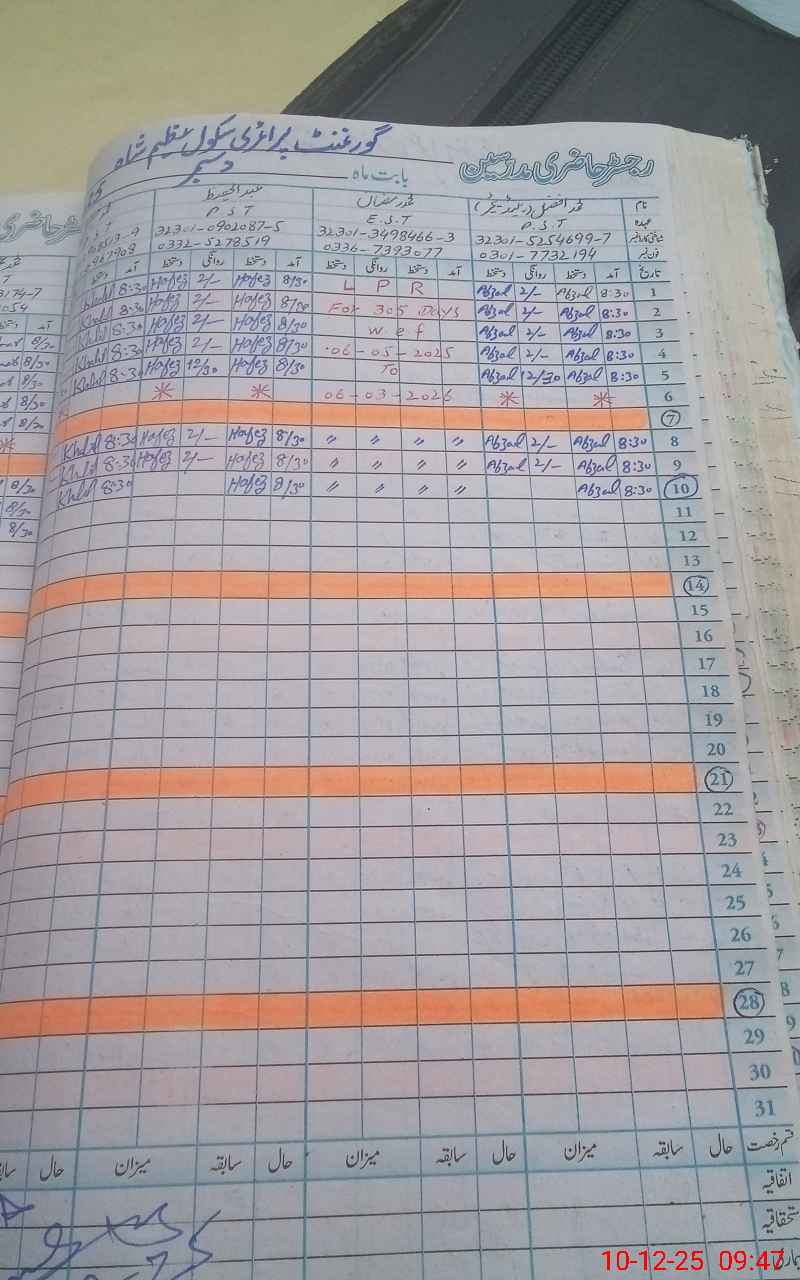 گورنمنٹ پرائمری سکول عظیم شاہ
رجسٹر حاضری مدرسین بابت ماہ دسمبر
نام محمد افضل محمد رمضان عبدالحفیظ
عہدہ P.S.T E.S.T P.S.T
شناختی کارڈ نمبر 32301-5254699-7 32301-3498466-3 32301-0902087-5
فون نمبر 0301-7732194 0336-7393077 0332-5278519
تاریخ آمد دستخط روانگی دستخط آمد دستخط روانگی دستخط آمد دستخط روانگی دستخط آمد دستخط
1 8:30 Abzal 2/- Abzal L P R 8/30 Hafez 2/- Hafez 8:30 Khalid
2 8:30 Abzal 2/- Abzal For 305 Days 8/30 Hafez 2/- Hafez 8:30 Khalid
3 8:30 Abzal 2/- Abzal w e f 8/30 Hafez 2/- Hafez 8:30 Khalid
4 8:30 Abzal 2/- Abzal 06-05-2025 8/30 Hafez 2/- Hafez 8:30 Khalid
5 8:30 Abzal 12/30 Abzal To 8/30 Hafez 12/30 Hafez 8:30 Khalid
6 * * 06-03-2026 * *
7
8 8:30 Abzal 2/- Abzal 〃 〃 〃 〃 8/30 Hafez 2/- Hafez 8:30 Khalid
9 8:30 Abzal 2/- Abzal 〃 〃 〃 〃 8/30 Hafez 2/- Hafez 8:30 Khalid
10 8:30 Abzal 〃 〃 〃 〃 8/30 Hafez 8:30 Khalid
11
12
13
14
15
16
17
18
19
20
21
22
23
24
25
26
27
28
29
30
31
قسم رخصت حال سابقہ میزان حال سابقہ میزان حال سابقہ میزان حال
اتفاقیہ
استحقاقیہ
بیماری
10-12-25 09:47